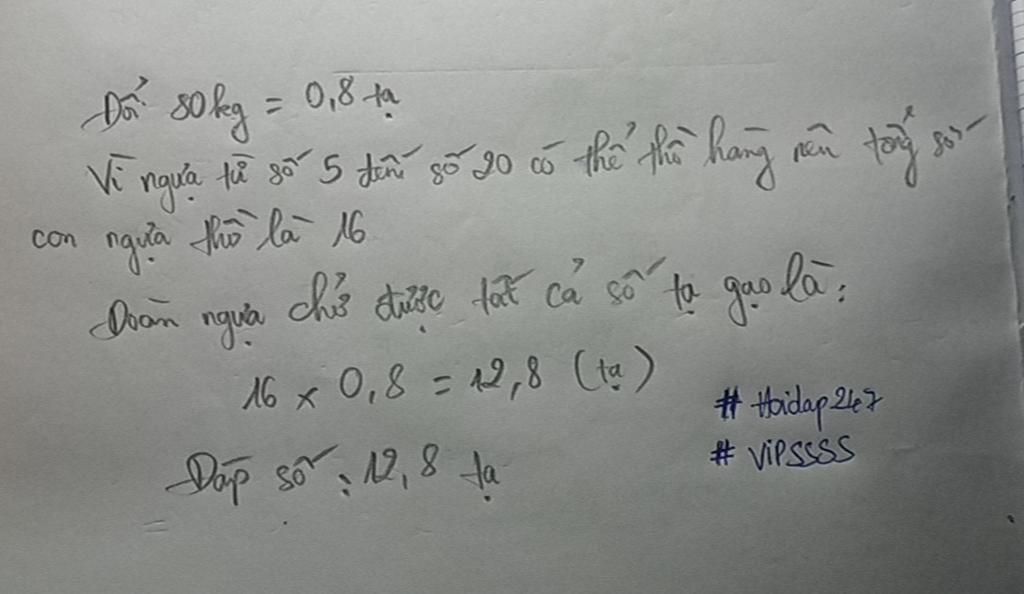 Đổi 80kg = 0,8 tạ
Vì ngựa từ số 5 đến số 20 có thể thồ hàng nên tổng số
con ngựa thồ là 16
Đoàn ngựa chở được tất cả số tạ gạo là:
16 x 0,8 = 12,8 (tạ)
Đáp số: 12,8 tạ
# Hoidap247
# VIPSSSS